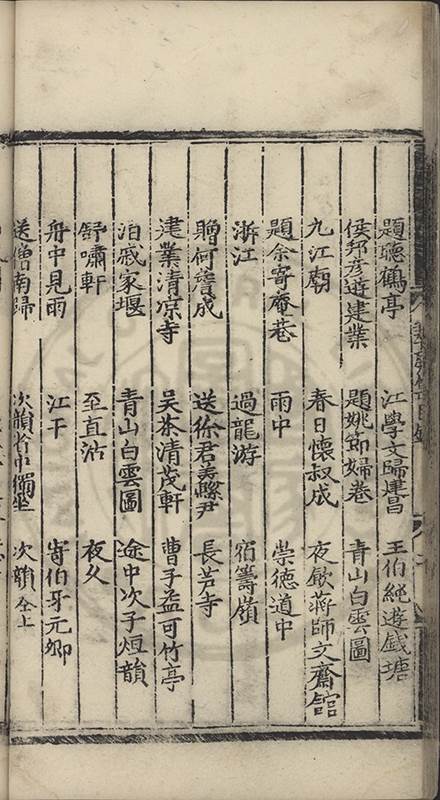 題聽鶴亭 江學文歸建昌 王伯純遊錢塘
侯邦彦遊建業 題姚節婦卷 青山白雲圖
九江廟 春日懷叔成 夜飲蔣師文齋館
題余寄庵卷 雨中 崇德道中
浙江 過龍游 宿籌嶺
贈何彦成 送徐君美縣尹 長芦寺
建業清凉寺 吴荼清茂軒 曹子益可竹亭
泊戚家堰 青山白雲圖 途中次子烜韻
舒嘯軒 至直沽 夜久
舟中見雨 江干 寄伯牙元卿
送僧南歸 次韻 獨坐 次韻仝上